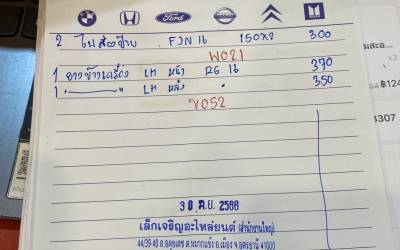 Ford
2 ไฟส่องป้าย FJN 16 150x2 300
W021
1 ยางข้างเครื่อง LH หน้า RG 16 370
1 " LH หลัง " 350
V052
30 ต.ย. 2566
เล็กเจริญอะไหล่ยนต์ (สำนักงานใหญ่)
44/39-40 ถ.อุดรดุษฎี ต.หมากแข้ง อ.เมือง จ.อุดรธานี 41000
฿124
3307